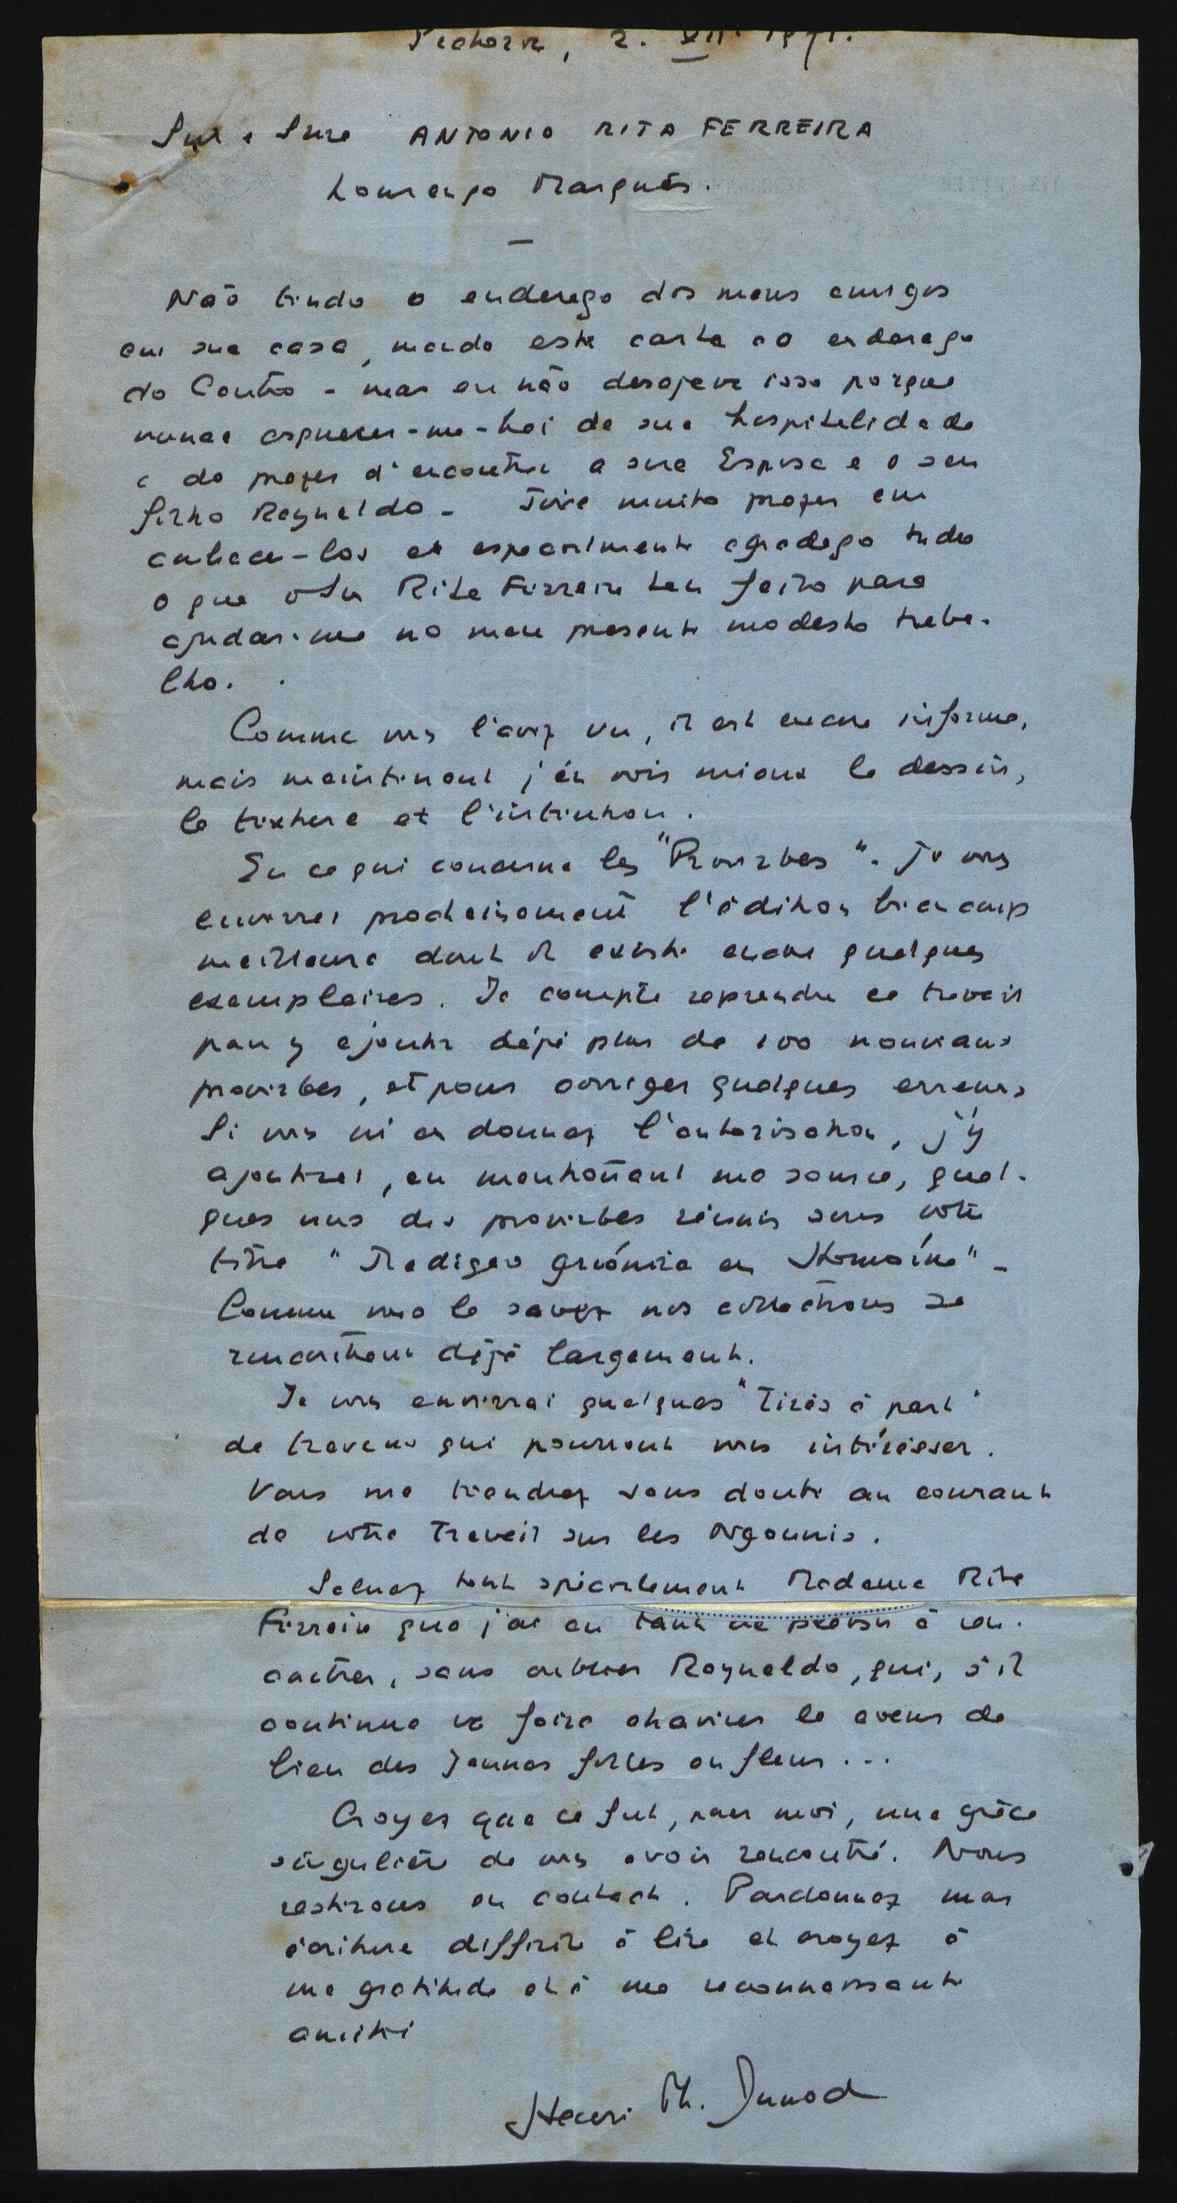 2. XII. 1971.
Snr e Snra ANTONIO RITA FERREIRA
Lourenço Marquês.
Não tendo o endereço dos meus amigos
em sua casa, mando esta carta ao endereço
do Centro - mas eu não desejava isso porque
nunca esquecer-me-hei de sua hospitalidade
e do prazer d'encontrar a sua Esposa e o seu
filho Reynaldo - Tive muito prazer em
conhece-los et especialmente agradeço tudo
o que o Snr Rita Ferreira tem feito para
ajudar-me no meu presente modesto traba-
lho.
Comme vous l'avez vu, il est encore informe,
mais maintenant j'en vois mieux le dessin,
la texture et l'intention.
En ce qui concerne les "Proverbes". Je vous
enverrai prochainement l'édition beaucoup
meilleure dont il existe encore quelques
exemplaires. Je compte reprendre ce travail
pour y ajouter déjà plus de 100 nouveaux
proverbes, et pour corriger quelques erreurs
Si vous m'en donnez l'autorisation, j'y
ajouterai, en mentionant ma source, quel-
ques uns des proverbes réunis sous votre
titre "
Comme vous le savez nos collections se
rencontrent déjà largement.
Je vous enverrai quelques "Tirés à part"
de travaux qui pourront vous intéresser.
Vous me tiendrez sans doute au courant
de votre Travail sur les Ngounis.
Saluez tout spécialement Madame Rita
Ferreira que j'ai eu tant de plaisir à ren-
contrer, sans oublier Reynaldo, qui, s'il
continue va faire chavirer le coeur de
bien des Jeunes filles en fleur ...
Croyez que ce fut, pour moi, une grâce
singulière de vous avoir rencontré. Nous
resterons en contact. Pardonnez mon
écriture difficile à lire et croyez à
ma gratitude et à ma reconnaissante
amitié
Henri Ph. Junod